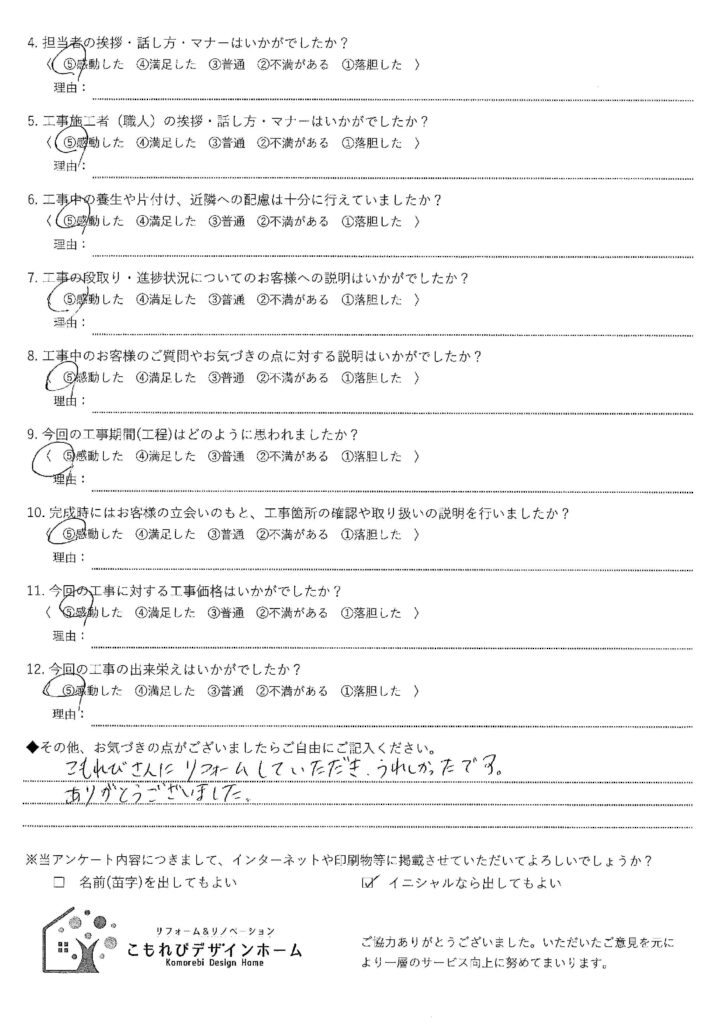 4. 担当者の挨拶・話し方・マナーはいかがでしたか？
〈 ⑤感動した ④満足した ③普通 ②不満がある ①落胆した 〉
理由：
5. 工事施工者（職人）の挨拶・話し方・マナーはいかがでしたか？
〈 ⑤感動した ④満足した ③普通 ②不満がある ①落胆した 〉
理由：
6. 工事中の養生や片付け、近隣への配慮は十分に行えていましたか？
〈 ⑤感動した ④満足した ③普通 ②不満がある ①落胆した 〉
理由：
7. 工事の段取り・進捗状況についてのお客様への説明はいかがでしたか？
〈 ⑤感動した ④満足した ③普通 ②不満がある ①落胆した 〉
理由：
8. 工事中のお客様のご質問やお気づきの点に対する説明はいかがでしたか？
〈 ⑤感動した ④満足した ③普通 ②不満がある ①落胆した 〉
理由：
9. 今回の工事期間(工程)はどのように思われましたか？
〈 ⑤感動した ④満足した ③普通 ②不満がある ①落胆した 〉
理由：
10. 完成時にはお客様の立会いのもと、工事箇所の確認や取り扱いの説明を行いましたか？
〈 ⑤感動した ④満足した ③普通 ②不満がある ①落胆した 〉
理由：
11. 今回の工事に対する工事価格はいかがでしたか？
〈 ⑤感動した ④満足した ③普通 ②不満がある ①落胆した 〉
理由：
12. 今回の工事の出来栄えはいかがでしたか？
〈 ⑤感動した ④満足した ③普通 ②不満がある ①落胆した 〉
理由：
◆その他、お気づきの点がございましたらご自由にご記入ください。
こもれびさんに リフォームしていただき、うれしかったです。
ありがとうございました。
※当アンケート内容につきまして、インターネットや印刷物等に掲載させていただいてよろしいでしょうか？
☐ 名前(苗字)を出してもよい ☑ イニシャルなら出してもよい
リフォーム&リノベーション
こもれびデザインホーム
Komorebi Design Home
ご協力ありがとうございました。いただいたご意見を元に
より一層のサービス向上に努めてまいります。